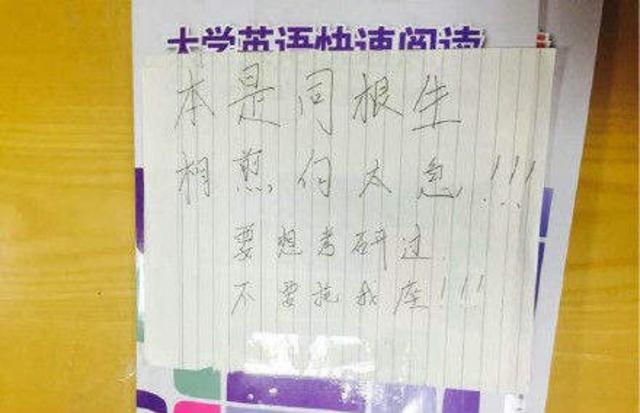 大学英语快速阅读
本是同根生
相煎何太急!!!
要想考研过
不要抢我座!!!